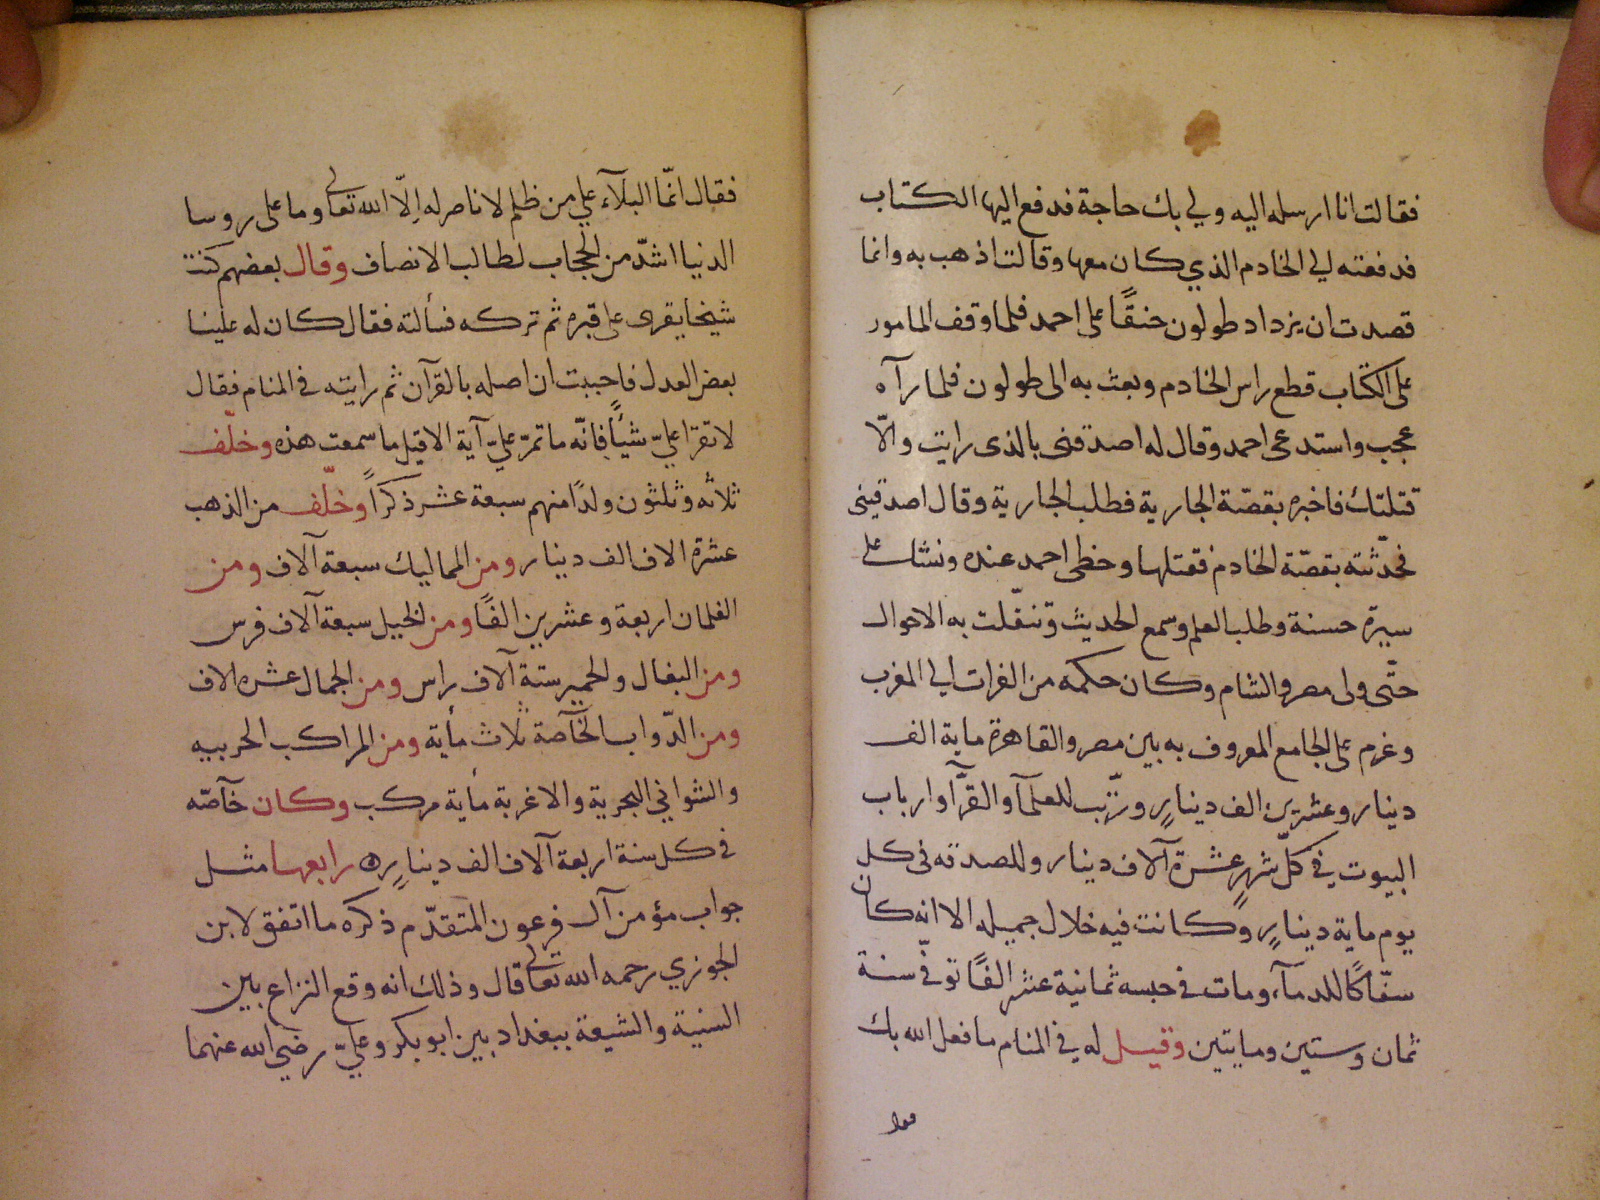 فقالت انا ارسله اليه ولي بك حاجة فدفع اليها الكتاب
فدفعته لي الخادم الذي كان معها وقالت اذهب به وانما
قصدت ان يزداد طولون حنقًا على احمد فلما وقف المامور
على الكتاب قطع راس الخادم وبعث به الى طولون فلما رآه
عجب واستدعى احمد وقال له اصدقنى بالذى رايت والّا
قتلتك فاخبره بقصّة الجارية فطلب الجارية وقال اصدقينى
فحدّثته بقصّة الخادم فقتلها وحظى احمد عنده ونشاء على
سيرة حسنة وطلب العلم وسمع الحديث وتنقّلت به الاحوال
حتّى ولى مصر والشام وكان حكمه من الفرات الي المغرب
وغرم على الجامع المعروف به بين مصر والقاهرة ماية الف
دينار وعشرين الف دينارٍ ورتّب للعلمآ والقرّآ وارباب
البيوت في كلّ شهرٍ عشرة آلاف دينار وللصدقه فى كل
يوم ماية دينارٍ وكانت فيه خلالٌ جميله الا انه كان
سفّاكًا للدمآء ومات فى حبسه ثمانية عشر الفًا توفّى سنة
ثمان وستين ومايتين وقيل له في المنام ما فعل الله بك
فقال انمّا البلآء علي من ظلم لا ناصر له اِلّا الله تعالى وما على روسا
الدنيا اشدّ من الحجاب لطالب الانصاف وقال بعضهم كنت
شيخا يقرى على قبره ثم تركه فسألته فقال كان له علينا
بعض العدل فاحببت ان اصله بالقرآن ثم رايته في المنام فقال
لا تقرا عليّ شيئًا فانّه ما تمرّ عليّ آية الا قيل ما سمعت هذه وخلّف
ثلاثه وثلثون ولدًا منهم سبعة عشر ذكرًا وخلّف من الذهب
عشرة الاف الف دينار ومن المماليك سبعة آلاف ومن
الغلمان اربعة وعشرين الفًا ومن الخيل سبعة آلاف فرس
ومن البغال والحمير ستة آلاف راس ومن الجمال عشره الاف
ومن الدّواب الخآصة ثلاث مأية ومن المراكب الحربيه
والشواني البحرية والاغربة مأية مركب وكان خآصّه
فى كل سنة اربعة آلاف الف دينارٍ ه رابعها مثل
جواب مؤمن آل فرعون المتقدّم ذكره ما اتفق لابن
الجوزي رحمه الله تعالى قال وذلك انه وقع النزاع بين
السنية والشيعة ببغداد بين ابو بكر وعليّ رضي الله عنهما